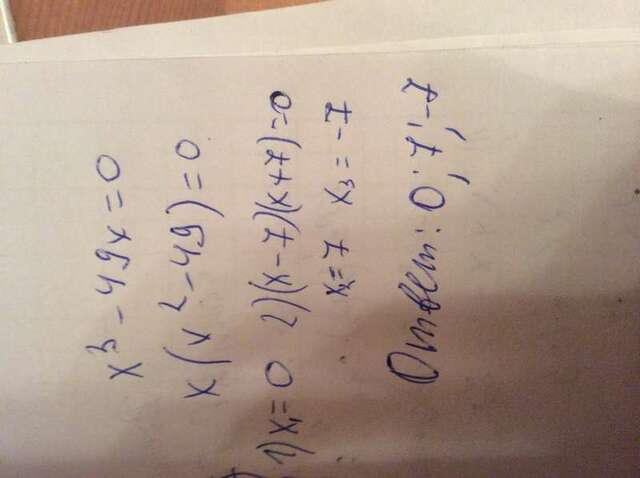 x³ - 49x = 0
x(x² - 49) = 0
1) x₁ = 0 2)(x - 7)(x + 7) = 0
x₂ = 7 x₃ = -7
Ответ: 0; 7; -7